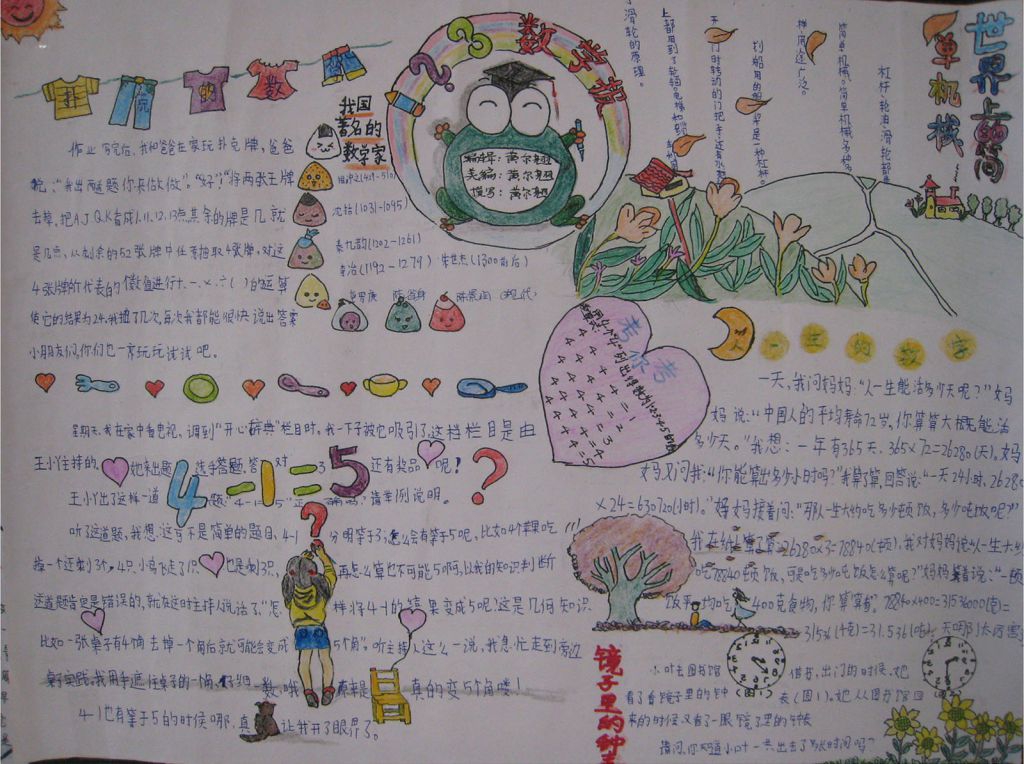 数学坊
编辑：黄尔翘
美编：黄尔翘
撰写：黄尔翘
我玩的数
作业写完后，我和爸爸在家玩扑克牌，爸爸
说：“我出两道题你来做做”。“好”！“将两张王牌
去掉，把A.J.Q.K看成1.11.12.13点其余的牌是几就
是几点，从剩余的52张牌中任意抽取4张牌，对这
4张牌所代表的数值进行+、-、×、÷（）的运算
使它的结果为24。
每次我都能很快说出答案
小朋友们，你们也一齐玩玩试试吧。
我国
著名的
数学家
祖冲之(429-510)
沈括(1031-1095)
秦九韶(1202-1261)
李冶(1192-1279)·朱世杰(1300前后)
华罗庚 陈省身 陈景润 (现代)
世界上的简
单机械
杠杆、轮轴、滑轮都是
简单机械。简单机械多种多
样，用途广泛。
划船用的
是一种杠杆。
不
门时转动的门把手，还有水
上都用到了轮轴。电梯和
了滑轮的原理。
考考你
4 4 4 4=1
4 4 4 4=2
4 4 4 4=3
4 4 4 4=4
4 4 4 4=5
4-1=5
星期天，我在家中看电视，调到“开心辞典”栏目时，我一下子被它吸引了，这档栏目是由
王小丫主持的，她来出题，选手答题，答对
还有奖品呢！
王小丫出了这样一道题：“4-1=5”正确吗？请举例说明。
听了这道题，我想：这可不是简单的题目，4-1分明等于3，怎么会等于5呢，比如4个苹果吃
掉一个还剩3个，4只小鸟飞走了1只也是剩3只，再怎么算也不可能5啊，以我的知识判断
这道题肯定是错误的，就在这时主持人说话了，“怎样将4-1的结果变成5呢？这是几何知识
比如一张桌子有4个角去掉一个角后就可能会变成5个角”。听主持人这么一说，我急忙走到旁边
桌子实践，我用手遮住桌子的一角，仔细一数，哦
真的变5个角喽！
4-1也有等于5的时候哪，真让我开了眼界了。
一生的数字
一天，我问妈妈：“人一生能活多少天呢？”妈
妈说：“中国人的平均寿命72岁，你算算大概能活
多少天。”我想：一年有365天，365×72=26280(天)。妈
妈又问我：“你能算出多少小时吗？”我算了算，回答说：“一天24小时，26280
×24=630720(小时)。”妈妈接着问：“那人一生大约吃多少顿饭，多少吨饭呢？”
我在纸上算了算：26280×3=78840(顿)，我对妈妈说：“人一生大约
吃78840顿饭，可是吃多少吨饭怎么算呢？”妈妈接着说：“一顿
饭平均吃400克食物，你算算看”。78840×400=31536000(克)=
31536(千克)=31.536(吨)，天哪！太厉害
镜子里的钟
小叶去图书馆借书，出门的时候，她
看了看镜子里的钟表(图1)。她从图书馆回
来的时候又看了一眼镜子里的钟表
请问，你知道小叶一共出去了多长时间吗？
(图1)